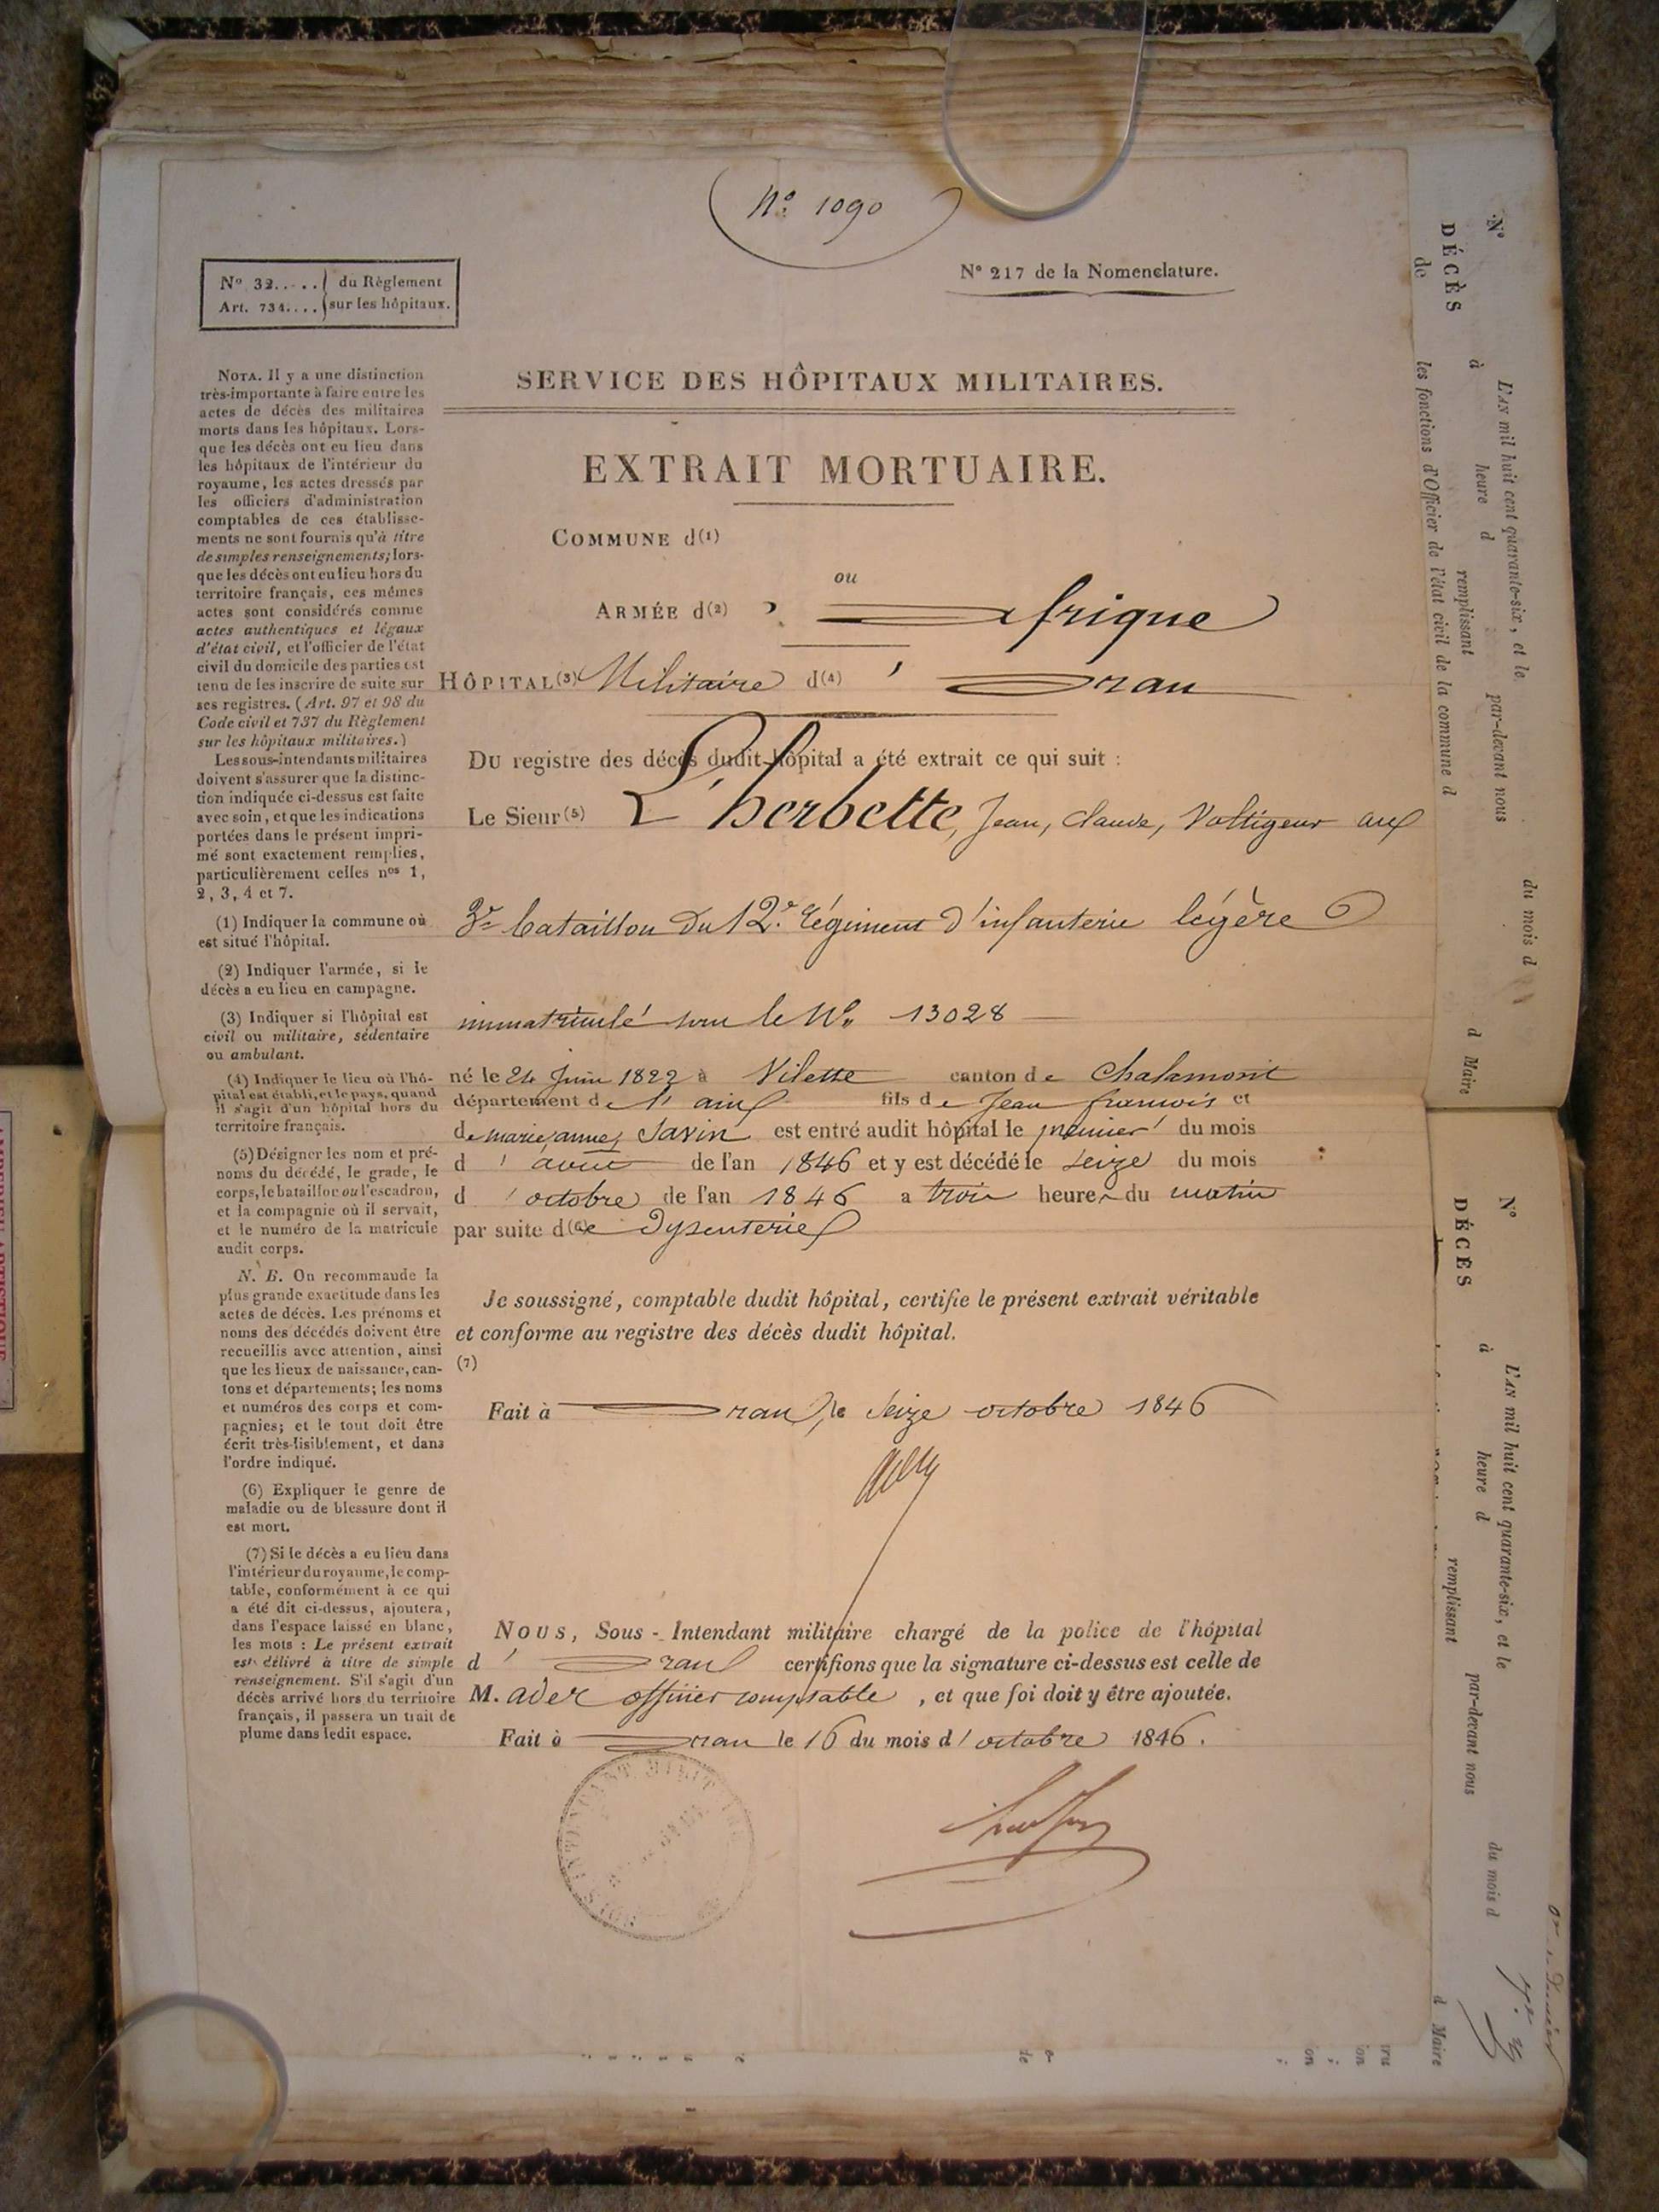 N° 1090
N° 32..... du Règlement
Art. 734.... sur les hôpitaux.
N° 217 de la Nomenclature.
SERVICE DES HÔPITAUX MILITAIRES.
EXTRAIT MORTUAIRE.
COMMUNE d(1)
ou
ARMÉE d(2) ' afrique
HÔPITAL(3) Militaire d(4) ' Oran
Du registre des décès dudit hôpital a été extrait ce qui suit :
Le Sieur(5) L'herbette, Jean, Claude, Voltigeur aux
3e bataillon du 12e régiment d'infanterie légère
immatriculé sous le No 13028
né le 24 Juin 1822 à Vilette canton de Chalamont
département de l'ain fils de Jean françois et
de marie anne, Savin est entré audit hôpital le premier du mois
d'août de l'an 1846 et y est décédé le seize du mois
d'octobre de l'an 1846 a trois heures du matin
par suite d(6)e Dysenterie
Je soussigné, comptable dudit hôpital, certifie le présent extrait véritable
et conforme au registre des décès dudit hôpital.
(7)
Fait à Oran, le seize octobre 1846
NOUS, Sous-Intendant militaire chargé de la police de l'hôpital
d' Oran certifions que la signature ci-dessus est celle de
M. ader officier comptable, et que foi doit y être ajoutée.
Fait à Oran le 16 du mois d'octobre 1846.
NOTA. Il y a une distinction
très-importante à faire entre les
actes de décès des militaires
morts dans les hôpitaux. Lors-
que les décès ont eu lieu dans
les hôpitaux de l'intérieur du
royaume, les actes dressés par
les officiers d'administration
comptables de ces établisse-
ments ne sont fournis qu'à titre
de simples renseignements; lors-
que les décès ont eu lieu hors du
territoire français, ces mêmes
actes sont considérés comme
actes authentiques et légaux
d'état civil, et l'officier de l'état
civil du domicile des parties est
tenu de les inscrire de suite sur
ses registres. (Art. 97 et 98 du
Code civil et 737 du Règlement
sur les hôpitaux militaires.)
Les sous-intendants militaires
doivent s'assurer que la distinc-
tion indiquée ci-dessus est faite
avec soin, et que les indications
portées dans le présent impri-
mé sont exactement remplies,
particulièrement celles nos 1,
2, 3, 4 et 7.
(1) Indiquer la commune où
est situé l'hôpital.
(2) Indiquer l'armée, si le
décès a eu lieu en campagne.
(3) Indiquer si l'hôpital est
civil ou militaire, sédentaire
ou ambulant.
(4) Indiquer le lieu où l'hô-
pital est établi, et le pays, quand
il s'agit d'un hôpital hors du
territoire français.
(5) Désigner les nom et pré-
noms du décédé, le grade, le
corps, le bataillon ou l'escadron,
et la compagnie où il servait,
et le numéro de la matricule
audit corps.
N. B. On recommande la
plus grande exactitude dans les
actes de décès. Les prénoms et
noms des décédés doivent être
recueillis avec attention, ainsi
que les lieux de naissance, can-
tons et départements; les noms
et numéros des corps et com-
pagnies; et le tout doit être
écrit très-lisiblement, et dans
l'ordre indiqué.
(6) Expliquer le genre de
maladie ou de blessure dont il
est mort.
(7) Si le décès a eu lieu dans
l'intérieur du royaume, le comp-
table, conformément à ce qui
a été dit ci-dessus, ajoutera,
dans l'espace laissé en blanc,
les mots : Le présent extrait
est délivré à titre de simple
renseignement. S'il s'agit d'un
décès arrivé hors du territoire
français, il passera un trait de
plume dans ledit espace.
N°
DÉCÈS
de
L'AN mil huit cent quarante-six, et le du mois d
à heure d par-devant nous
remplissant
les fonctions d'Officier de l'état civil de la commune d
d Maire
N°
DÉCÈS
L'AN mil huit cent quarante-six, et le du mois d
à heure d par-devant nous
remplissant
d Maire